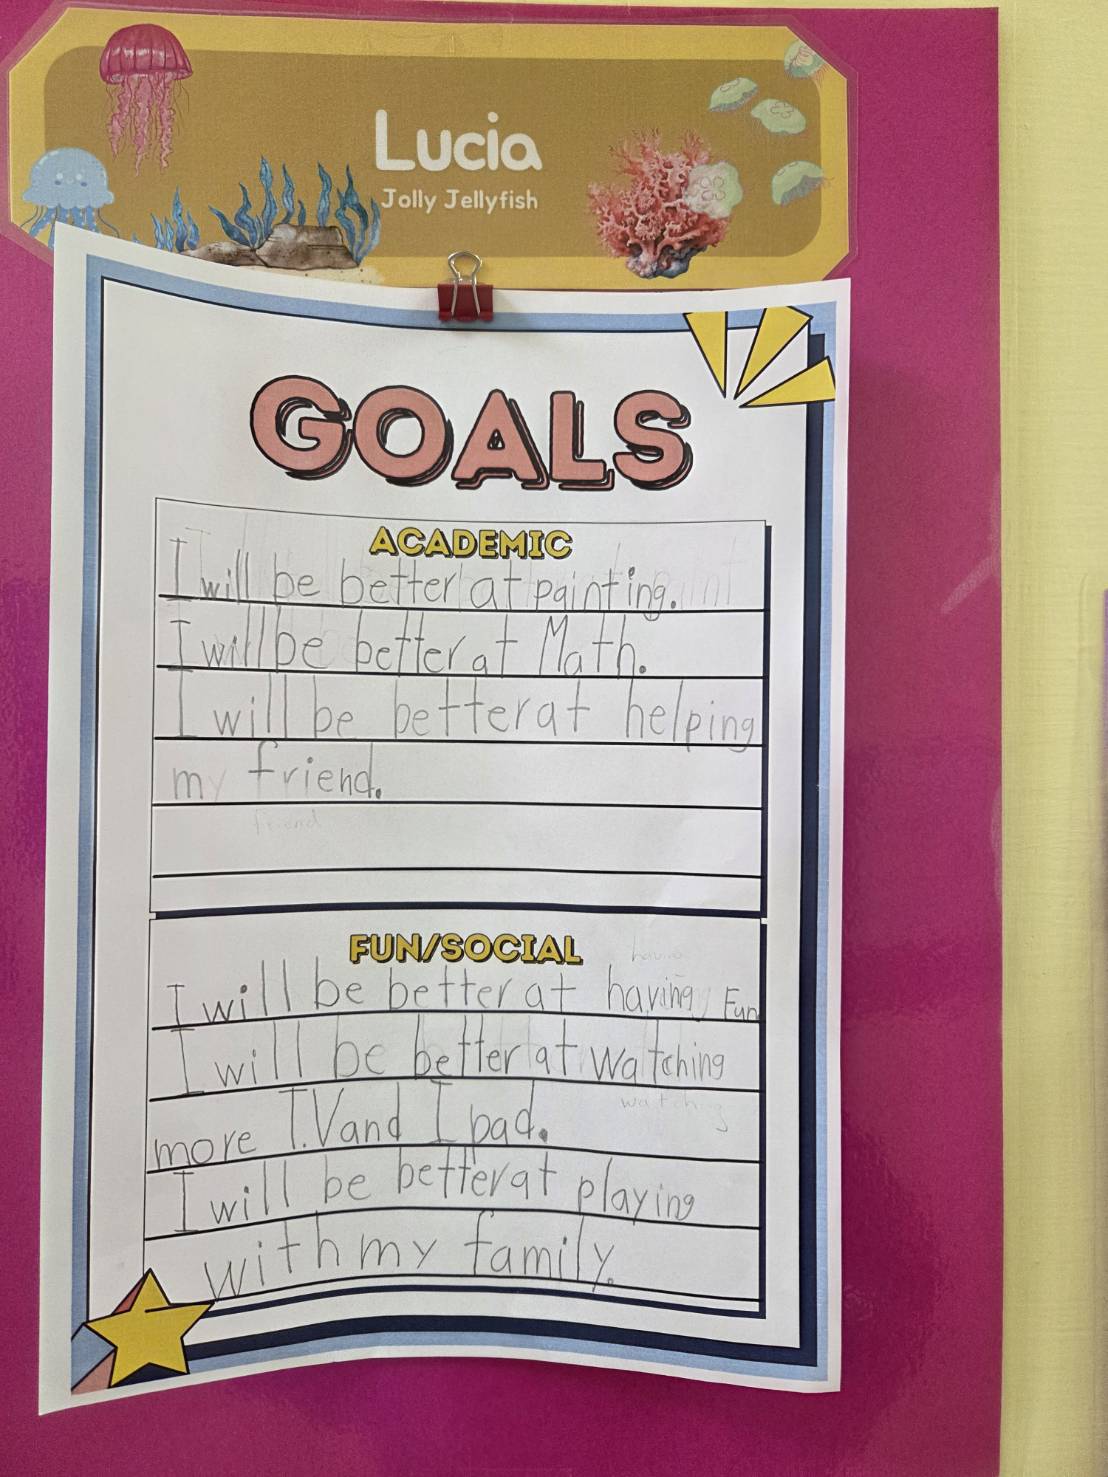 Lucia
Jolly Jellyfish
GOALS
ACADEMIC
I will be better at painting.
I will be better at Math.
I will be better at helping
my friend.
friend
FUN/SOCIAL
having
I will be better at having Fun
I will be better at watching
watching
more T.V and I pad.
I will be better at playing
with my family.